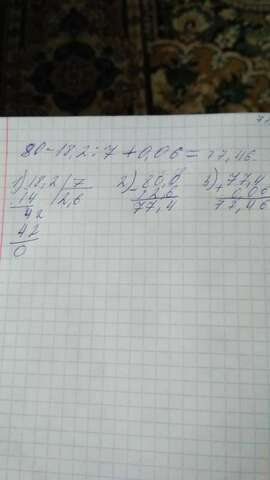 80-18,2:7+0,06=77,46
1) 18,2 | 7   2) - 80,0   3) + 77,4
14 | 2,6   2,6   0,06
42   77,4   77,46
42
0